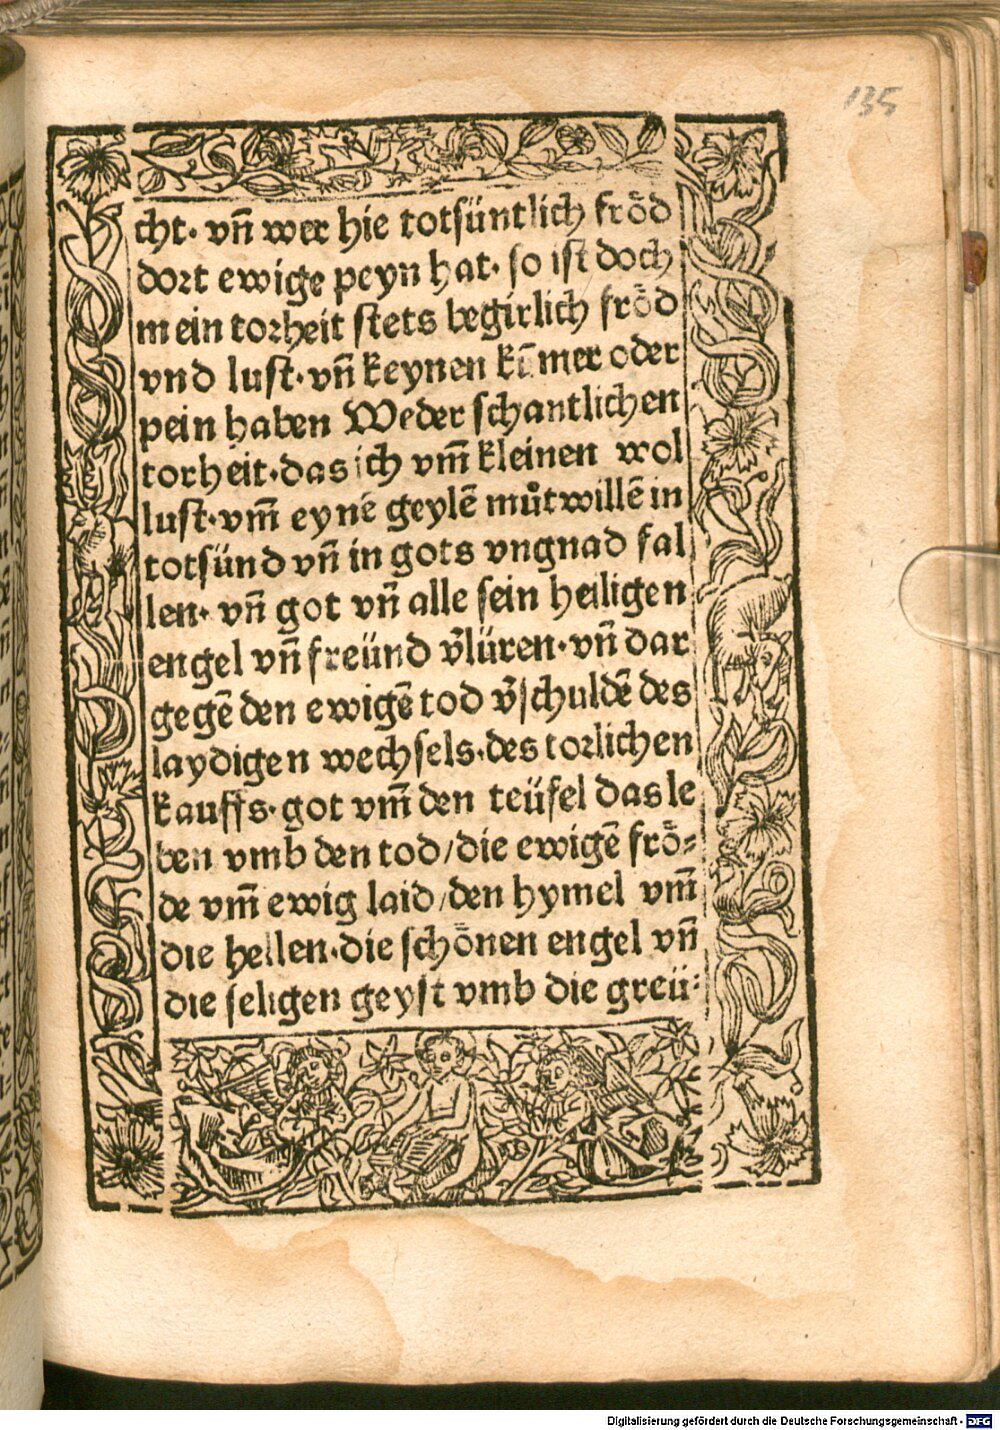 135
cht· vn̄ wer hie totsüntlich frȫd
dort ewige peyn hat· so ist doch
mein torheit stets begirlich frȫd
vnd lust· vn̄ keynen kūmer oder
pein haben Weder schantlichen
torheit·das ich vm̄ kleinen wol
lust·vm̄ eyné geylē můtwillē in
totsünd vn̄ in gots vngnad fal
len· vn̄ got vn̄ alle sein heiligen
engel vn̄ freünd v̄lüren·vn̄ dar
gegē den ewigē tod v̄schuldē des
laydigen wechsels·des torlichen
kauffs·got vm̄ den teüfel das le
ben vmb den tod/die ewigē frȫ⸗
de vm̄ ewig laid/den hymel vm̄
die hellen·die schönen engel vn̄
die seligen geyst vmb die greü⸗
Digitalisierung gefördert durch die Deutsche Forschungsgemeinschaft - DFG